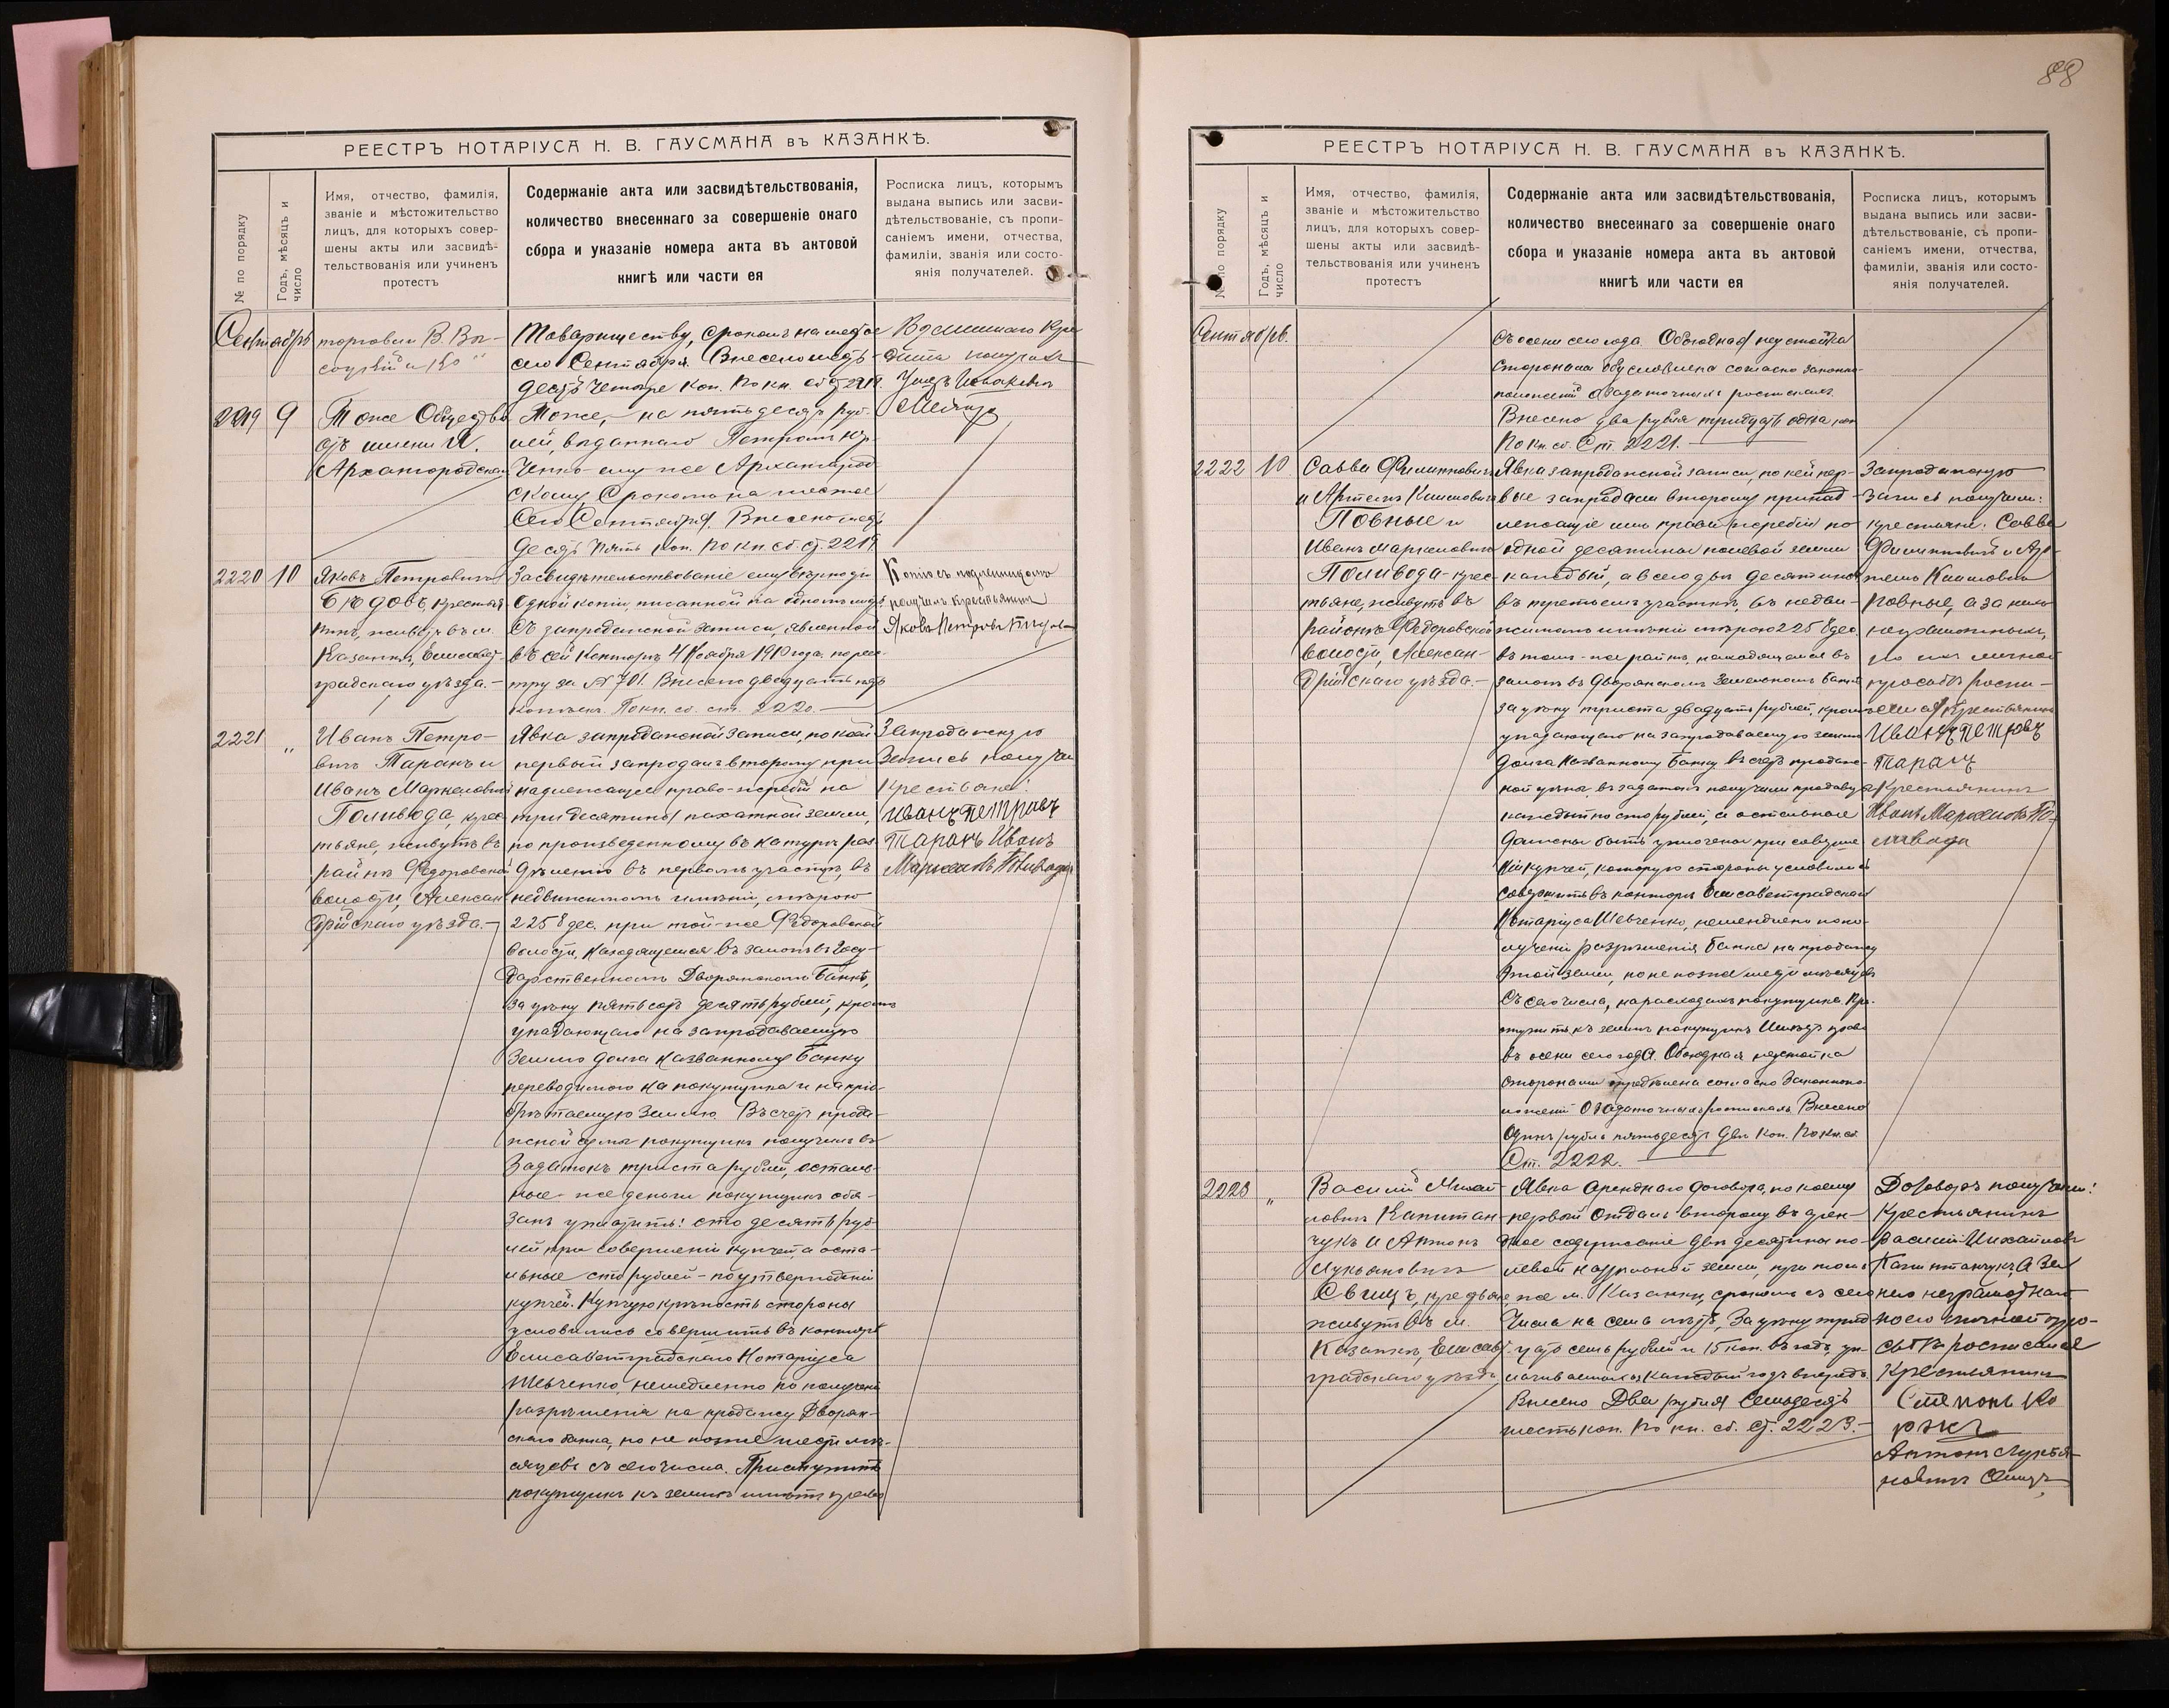 88
РЕЕСТРЪ НОТАРІУСА Н. В. ГАУСМАНА въ КАЗАНКѢ.
№ по порядку
Годъ, мѣсяцъ и
число
Имя, отчество, фамилія,
званіе и мѣстожительство
лицъ, для которыхъ совер-
шены акты или засвидѣ-
тельствованія или учиненъ
протестъ
Содержаніе акта или засвидѣтельствованія,
количество внесеннаго за совершеніе онаго
сбора и указаніе номера акта въ актовой
книгѣ или части ея
Росписка лицъ, которымъ
выдана выпись или засви-
дѣтельствованіе, съ пропи-
саніемъ имени, отчества,
фамиліи, званія или состо-
янія получателей.
Сентябрь
торговли В. Вы-
соцкій и Ко"
Товариществу, срокомъ на шестое
сего Сентября. Внесено
десятъ четыре коп. По кн. сб. ст.
Взаимнаго Кре
дита получилъ
2219
9
Тоже Общество
имени И.
Архангородскаго
Тоже, на пятьдесятъ руб-
лей, выданнаго Петромъ
ченко ему же Архангород
скому срокомъ на шестое
сего Сентября. Внесено
десятъ пять коп. По кн. сб. ст. 2219
2220
10
Яковъ Петровичъ
Бѣдовъ, крестья-
нинъ, живетъ въ м.
Казанкѣ, Елисавет-
градскаго уѣзда.-
Засвидѣтельствованіе ему вѣрности
одной копіи, писанной на одномъ листѣ
съ запродажной записи, явленной
въ сей Конторѣ 4 Ноября 1910 года по реес-
тру за № 701. Внесено двадцать пять
копѣекъ. По кн. сб. ст. 2220.-
Копію съ подлинникомъ
получилъ крестьянинъ
Яковъ Петровъ Бѣдовъ
2221
"
Иванъ Петро-
вичъ Таранъ и
Иванъ Маркеловичъ
Поливода, крес
тьяне, живутъ въ
районѣ Федоровской
волости, Алексан
дрійскаго уѣзда.-
Явка запродажной записи, по коей
первый запродалъ второму при
надлежащее право-жребій на
три десятины пахатной земли,
по произведенному въ натурѣ раз
дѣленію въ первомъ участкѣ, въ
недвижимомъ имѣніи, мѣрою
2258 дес. при той-же Федоровской
волости, находящемся въ залогѣ въ Госу-
дарственномъ Дворянскомъ Банкѣ,
за цѣну пятьсотъ десять рублей, кромѣ
упадающаго на запродаваемую
землю долга названному Банку
переводимого на покупщика и на прі-
обрѣтаемую землю. Въ счетъ прода-
жной цѣны покупщикъ получилъ въ
задатокъ триста рублей, осталь-
ные-же деньги покупщикъ обя-
занъ уплатить: сто десять руб-
лей при совершеніи купчей, а оста-
льные сто рублей - по утвержденіи
купчей. Купчую крѣпость стороны
условились совершить въ конторѣ
Елисаветградскаго Нотаріуса
Шевченко, немедленно по полученіи
разрѣшенія на продажу Дворян-
скаго банка, но не позже шести мѣ-
сяцевъ съ сего числа. Приступить
покупщикъ къ землѣ имѣетъ право
Запродажную
запись получили
крестьяне:
Иванъ Петровъ
Таранъ Иванъ
Маркеловъ Поливода
РЕЕСТРЪ НОТАРІУСА Н. В. ГАУСМАНА въ КАЗАНКѢ.
№ по порядку
Годъ, мѣсяцъ и
число
Имя, отчество, фамилія,
званіе и мѣстожительство
лицъ, для которыхъ совер-
шены акты или засвидѣ-
тельствованія или учиненъ
протестъ
Содержаніе акта или засвидѣтельствованія,
количество внесеннаго за совершеніе онаго
сбора и указаніе номера акта въ актовой
книгѣ или части ея
Росписка лицъ, которымъ
выдана выпись или засви-
дѣтельствованіе, съ пропи-
саніемъ имени, отчества,
фамиліи, званія или состо-
янія получателей.
Сентябрь.
съ осени сего года. Обоюдная неустойка
сторонами обусловлена согласно законопо-
ложеній о задаточныхъ роспискахъ.
Внесено два рубля тридцать одна коп
По кн. сб. Ст. 2221.
2222
10
Савва Филипповичъ
и Артемъ Климовичъ
Повные и
Иванъ Маркеловичъ
Поливода - крес-
тьяне, живутъ въ
районѣ Федоровской
волости, Алексан-
дрійскаго уѣзда.-
Явка запродажной записи, по коей пер-
вые запродали второму принад-
лежащіе имъ права-жребіи по
одной десятинѣ полевой земли
каждый, а всего двѣ десятины
въ третьемъ участкѣ, въ недви-
жимомъ имѣніи мѣрою 2258 дес.
въ томъ-же районѣ, находящемся въ
залогѣ въ Дворянскомъ Земельномъ банкѣ
за цѣну триста двадцать рублей, кромѣ
упадающаго на запродаваемую землю
долга названному банку. Въ счетъ продаж-
ной цѣны, въ задатокъ получили продавцы
каждый по сто рублей, а остальные
должны быть уплочены при соверше
ніи купчей, которую стороны условились
совершить въ конторѣ Елисаветградскаго
Нотаріуса Шевченко, немедленно по по-
лученіи разрѣшенія банка на продажу
этой земли, но не позже шести мѣсяцевъ
съ сего числа, на расходахъ покупщика. При-
ступить къ землѣ покупщикъ имѣетъ право
въ осени сего года. Обоюдная неустойка
сторонами опредѣлена согласно законопо-
ложеній о задаточныхъ роспискахъ. Внесено
одинъ рубль пятьдесятъ двѣ коп. По кн. сб.
Ст. 2222.
Запродажную
запись получили:
крестьяне: Савва
Филипповичъ и Ар-
темъ Климовичъ
Повные, а за нихъ
неграмотныхъ,
по ихъ личной
просьбѣ роспи-
крестьянинъ
Иванъ Петровъ
Таранъ
крестьянинъ
Иванъ Маркеловъ По-
ливода
2223
"
Василій Михай-
ловичъ Капитан-
чукъ и Антонъ
Лукьяновичъ
Свищъ, крестьяне
живутъ въ м.
Казанкѣ, Елисавет-
градскаго уѣзда
Явка аренднаго договора, по коему
первый отдалъ второму въ арен-
дное содержаніе двѣ десятины по-
левой надѣльной земли, при томъ
же м. Казанки, срокомъ съ сего
числа на семь лѣтъ, за цѣну трид
цать семь рублей и 15 коп. въ годъ, уп-
лачиваемыхъ каждый годъ впередъ.
Внесено Два рубля семьдесятъ
шесть коп. По кн. сб. Ст. 2223.-
Договоръ получили:
крестьянинъ
Василій Михайловъ
Капитанчукъ, а за
него неграмотнаго
по его личной про-
сьбѣ росписался
крестьянинъ
Антонъ Лукья-
новичъ Свищъ